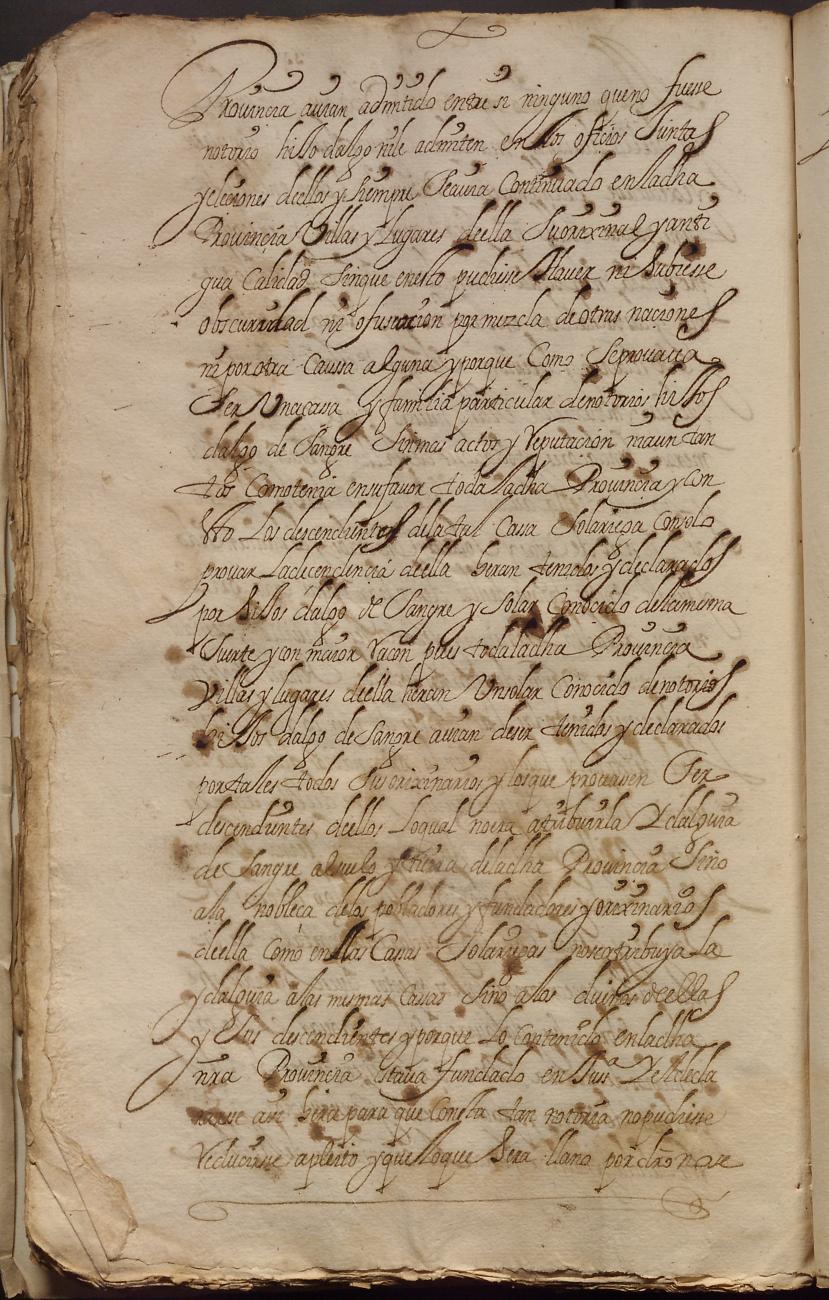 Provincia auian admitido entre si ninguno que no fuese
notorio hillo dalgo ni le admiten en los oficios Juntas
y eleciones de ellos y siempre se auia Continuado en la dha
Prouincia Villas y Lugares de ella Su orixinal y anti
gua Calidad Sin que en esto pudiese Hauer ni hubiese
obscuridad ni ofuscacion por mezcla de otras naciones
ni por otra Caussa alguna y porque Como Se prouaria
Ser Una casa y familia particular de notorios hillos
dalgo de Sangre Sin mas actos y Reputacion ni aun tan
tos Como tenia en su fauor toda la dha Prouincia y con
esto Los descendientes de la tal Casa Solariega Con solo
prouar La decendencia de ella heran tenidos y declarados
por hillos dalgo de Sangre y Solar Conocido de la misma
Suerte y con maior Racon pues toda la dha Prouincia
Villas y lugares de ella heran Un solar Conocido de notorios
hillos dalgo de Sangre auian de ser tenidos y declarados
por tales todos Sus orixinarios y los que prouasen Ser
descendientes de ellos Lo qual no era atribuirla Ydalguia
de Sangre al suelo y tierra de la dha Prouincia Sino
a la nobleca de los pobladores y fundadores y orixinarios
de ella Como en llas Casas Solariegas no se atribuya La
ydalguia a las mismas Casas Sino a los dueños de ellas
y Sus descendientes y porque Lo Contenido en la dha
nra Prouincia estaua fundado en Jusa Y el decla
rarse asi hera para que Cossa tan notoria no pudiese
Reducirse a pleito y que lo que hera llano por dro no se